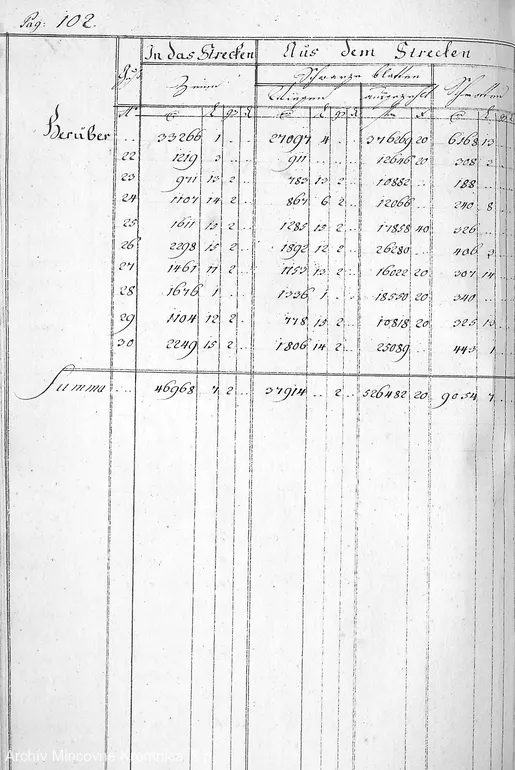 Pag: 102.
In das Strecken Aus dem Strecken
Schwarze blatten
Zeine
wiegen ausgezahlt
No
Herüber ... 33266 1 .. .. 27097 4 .. .. 376269 20 6168 13
22 1219 3 .. .. 911 .. .. .. 12646 20 308 2
23 971 13 2 .. 783 13 2 .. 10882 .. 188 ..
24 1107 14 2 .. 867 6 2 .. 12066 .. 240 8
25 1611 13 2 .. 1285 13 2 .. 17858 40 326 ..
26 2298 15 2 .. 1892 12 2 .. 26280 .. 406 3
27 1461 11 2 .. 1153 13 2 .. 16022 20 307 14
28 1676 1 .. .. 1336 1 .. .. 18550 20 340 ..
29 1104 12 2 .. 778 15 2 .. 10818 20 325 13
30 2249 15 2 .. 1806 14 2 .. 25089 .. 443 1
Summa ... 46968 7 2 .. 37914 .. 2 .. 526482 20 9054 7
Archív Mincovne Kremnica